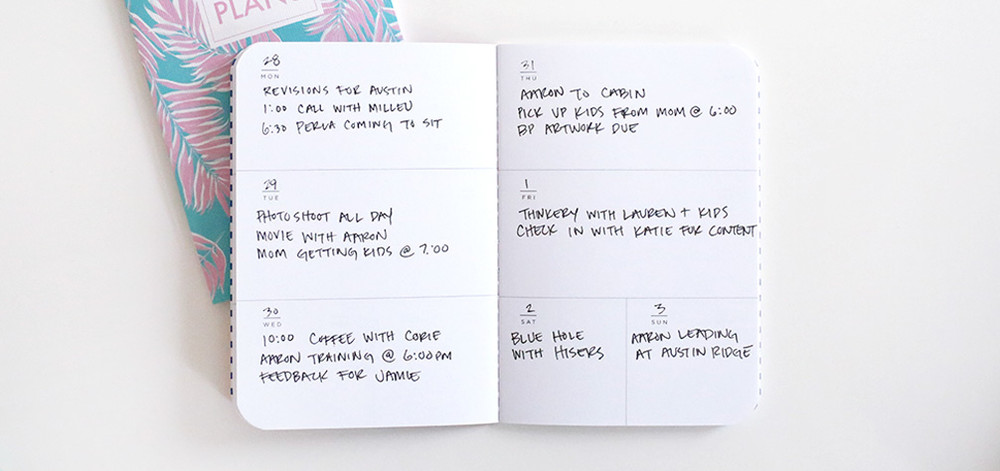 PLANS
28
MON
REVISIONS FOR AUSTIN
1:00 CALL WITH MILLEU
6:30 PERLA COMING TO SIT
29
TUE
PHOTOSHOOT ALL DAY
MOVIE WITH AARON
MOM GETTING KIDS @ 7:00
30
WED
10:00 COFFEE WITH CORIE
AARON TRAINING @ 6:00PM
FEEDBACK FOR JAMIE
31
THU
AARON TO CABIN
PICK UP KIDS FROM MOM @ 6:00
BP ARTWORK DUE
1
FRI
THINKERY WITH LAUREN + KIDS
CHECK IN WITH KATIE FOR CONTENT
2
SAT
BLUE HOLE
WITH HISERS
3
SUN
AARON LEADING
AT AUSTIN RIDGE